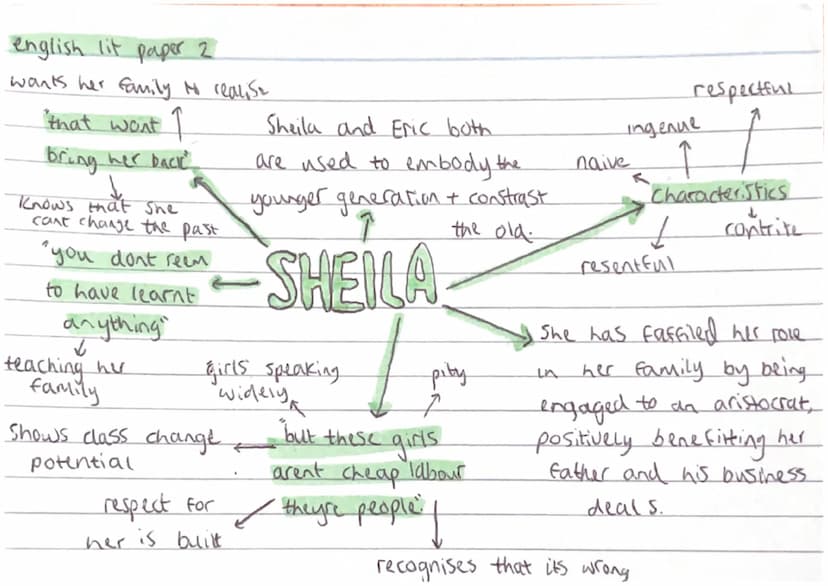 english lit paper 2
wants her family to realise
"that wont
bring her back"
knows that she
cant change the past
"you dont seem
to have learnt
anything"
teaching her
family
Sheila and Eric both
are used to embody the
younger generation + constrast
the old.
SHEILA
respectful
ingenue
naive
characteristics
contrite
resentful
She has faffiled her role
in her family by being
engaged to an aristocrat,
positively benefitting her
father and his business
deals.
girls speaking
widely
pity
"but these girls
arent cheap labour
theyre people".
shows class change
potential
respect for
her is built
recognises that its wrong